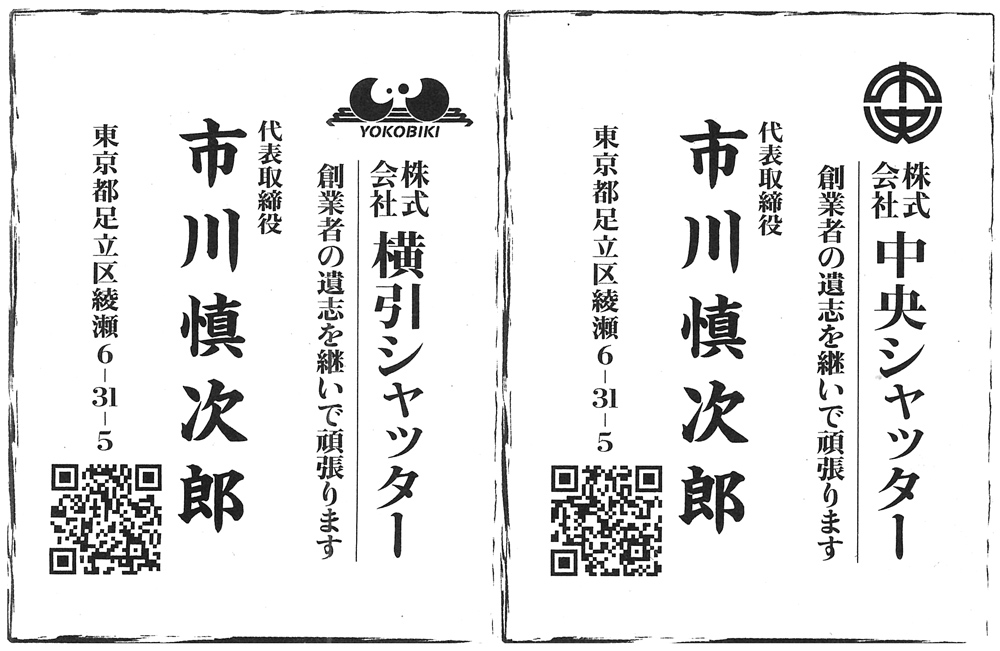 中央
株式会社 中央シャッター
創業者の遺志を継いで頑張ります
代表取締役
市川慎次郎
東京都足立区綾瀬6-31-5
YOKOBIKI
株式会社 横引シャッター
創業者の遺志を継いで頑張ります
代表取締役
市川慎次郎
東京都足立区綾瀬6-31-5